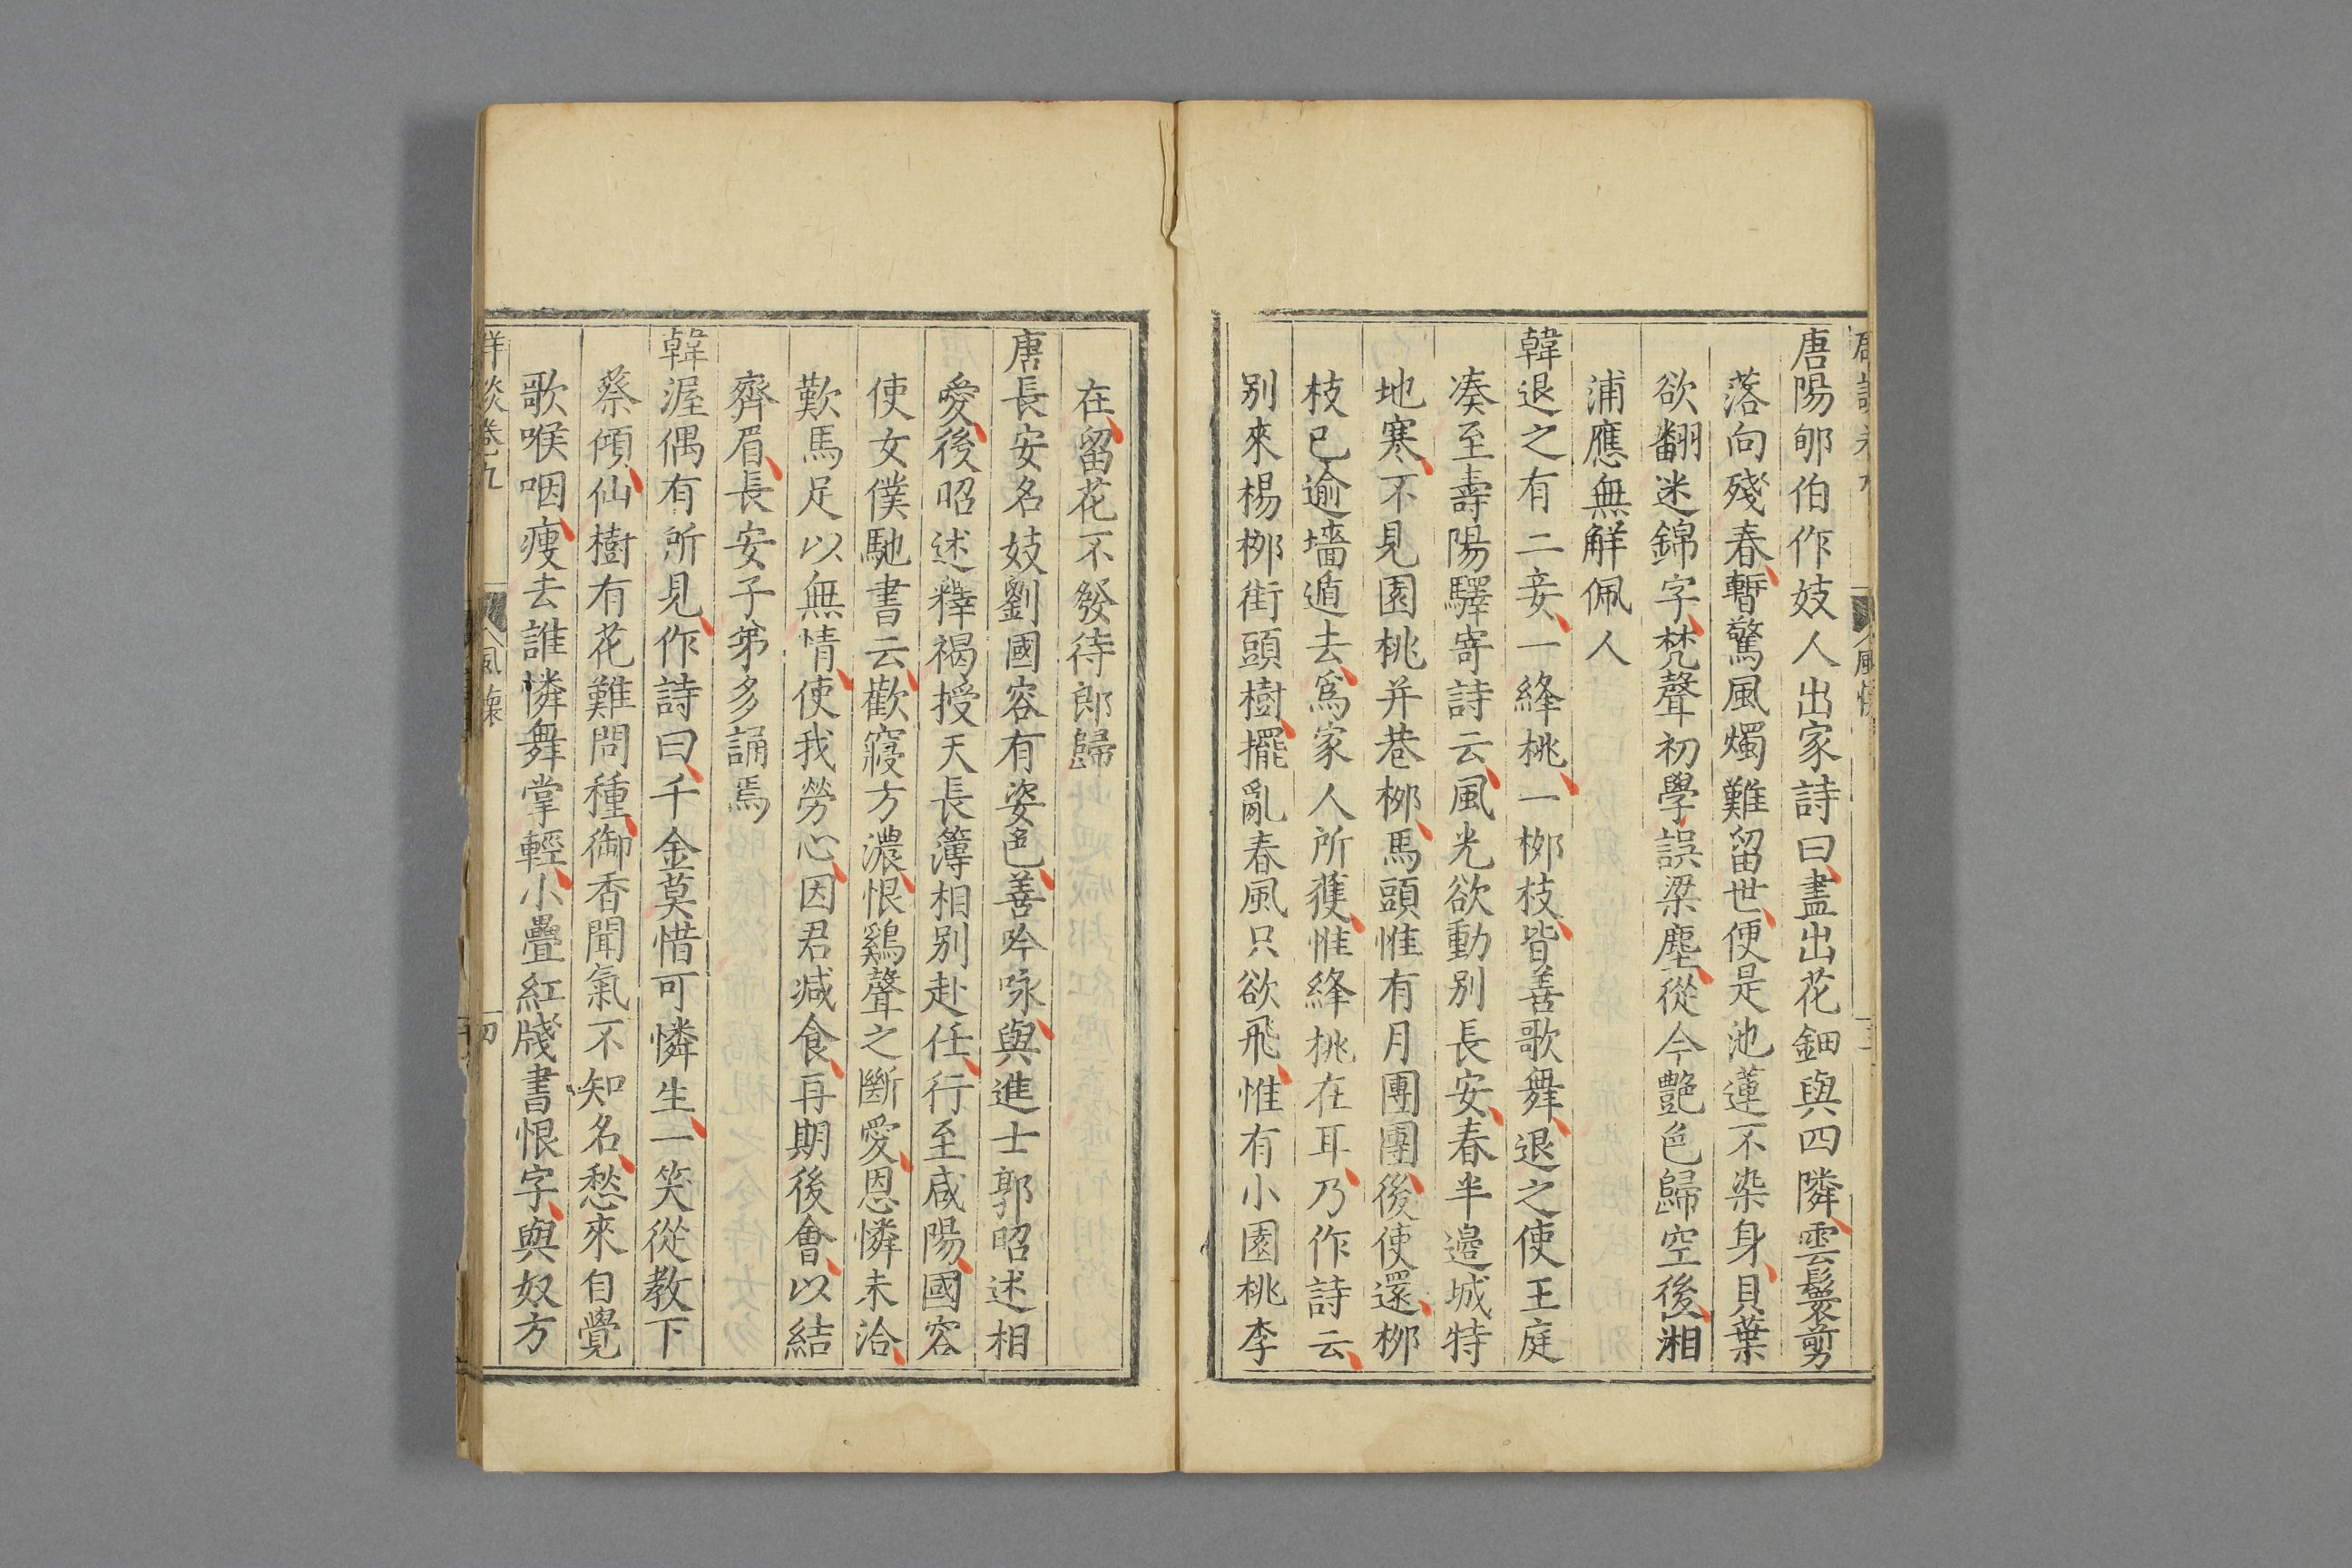 唐陽郇伯作妓人出家詩曰盡出花鈿與四隣雲鬟剪
落向殘春暫驚風燭難留世便是池蓮不染身貝葉
欲翻迷錦字梵聲初學誤梁塵從今艷色歸空後湘
浦應無觧佩人
韓退之有二妾一絳桃一桞枝皆善歌舞退之使王庭
凑至壽陽驛寄詩云風光欲動别長安春半邉城特
地寒不見園桃并巷桞馬頭惟有月團團後使還桞
枝已逾墻遁去為家人所獲惟絳桃在耳乃作詩云
别來楊桞街頭樹擺亂春風只欲飛惟有小園桃李
在留花不發待郎歸
唐長安名妓劉國容有姿色善吟咏與進士郭昭述相
愛後昭述釋褐授天長簿相别赴任行至咸陽國容
使女僕馳書云歡寢方濃恨鷄聲之斷愛恩憐未洽
歎馬足以無情使我勞心因君减食再期後會以結
齊眉長安子弟多誦焉
韓渥偶有所見作詩曰千金莫惜可憐生一笑從教下
蔡傾仙樹有花難問種御香聞氣不知名愁來自覺
歌喉咽瘦去誰憐舞掌輕小疊紅牋書恨字與奴方
卷九